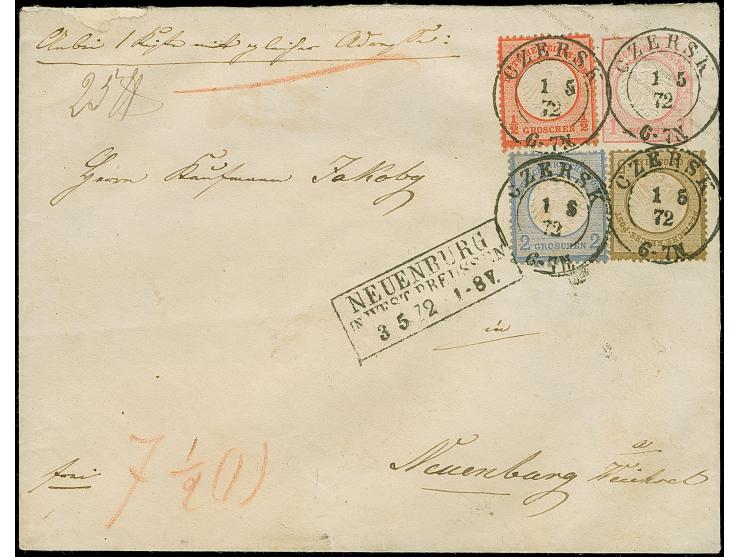 Anbei 1 Kiste mit gleicher Adresse:
25 ℔
Herrn Kaufmann Jakoby
in
Neuenburg a/ Weichsel
frei
7 ½ (1)
½ GROSCHEN ½
2 GROSCHEN 2
CZERSK
1 5
72
6-7N
CZERSK
1 5
72
6-7N
CZERSK
1 5
72
6-7N
CZERSK
1 5
72
6-7N
NEUENBURG
IN WEST PREUSSEN
3 5 72 1-8V.